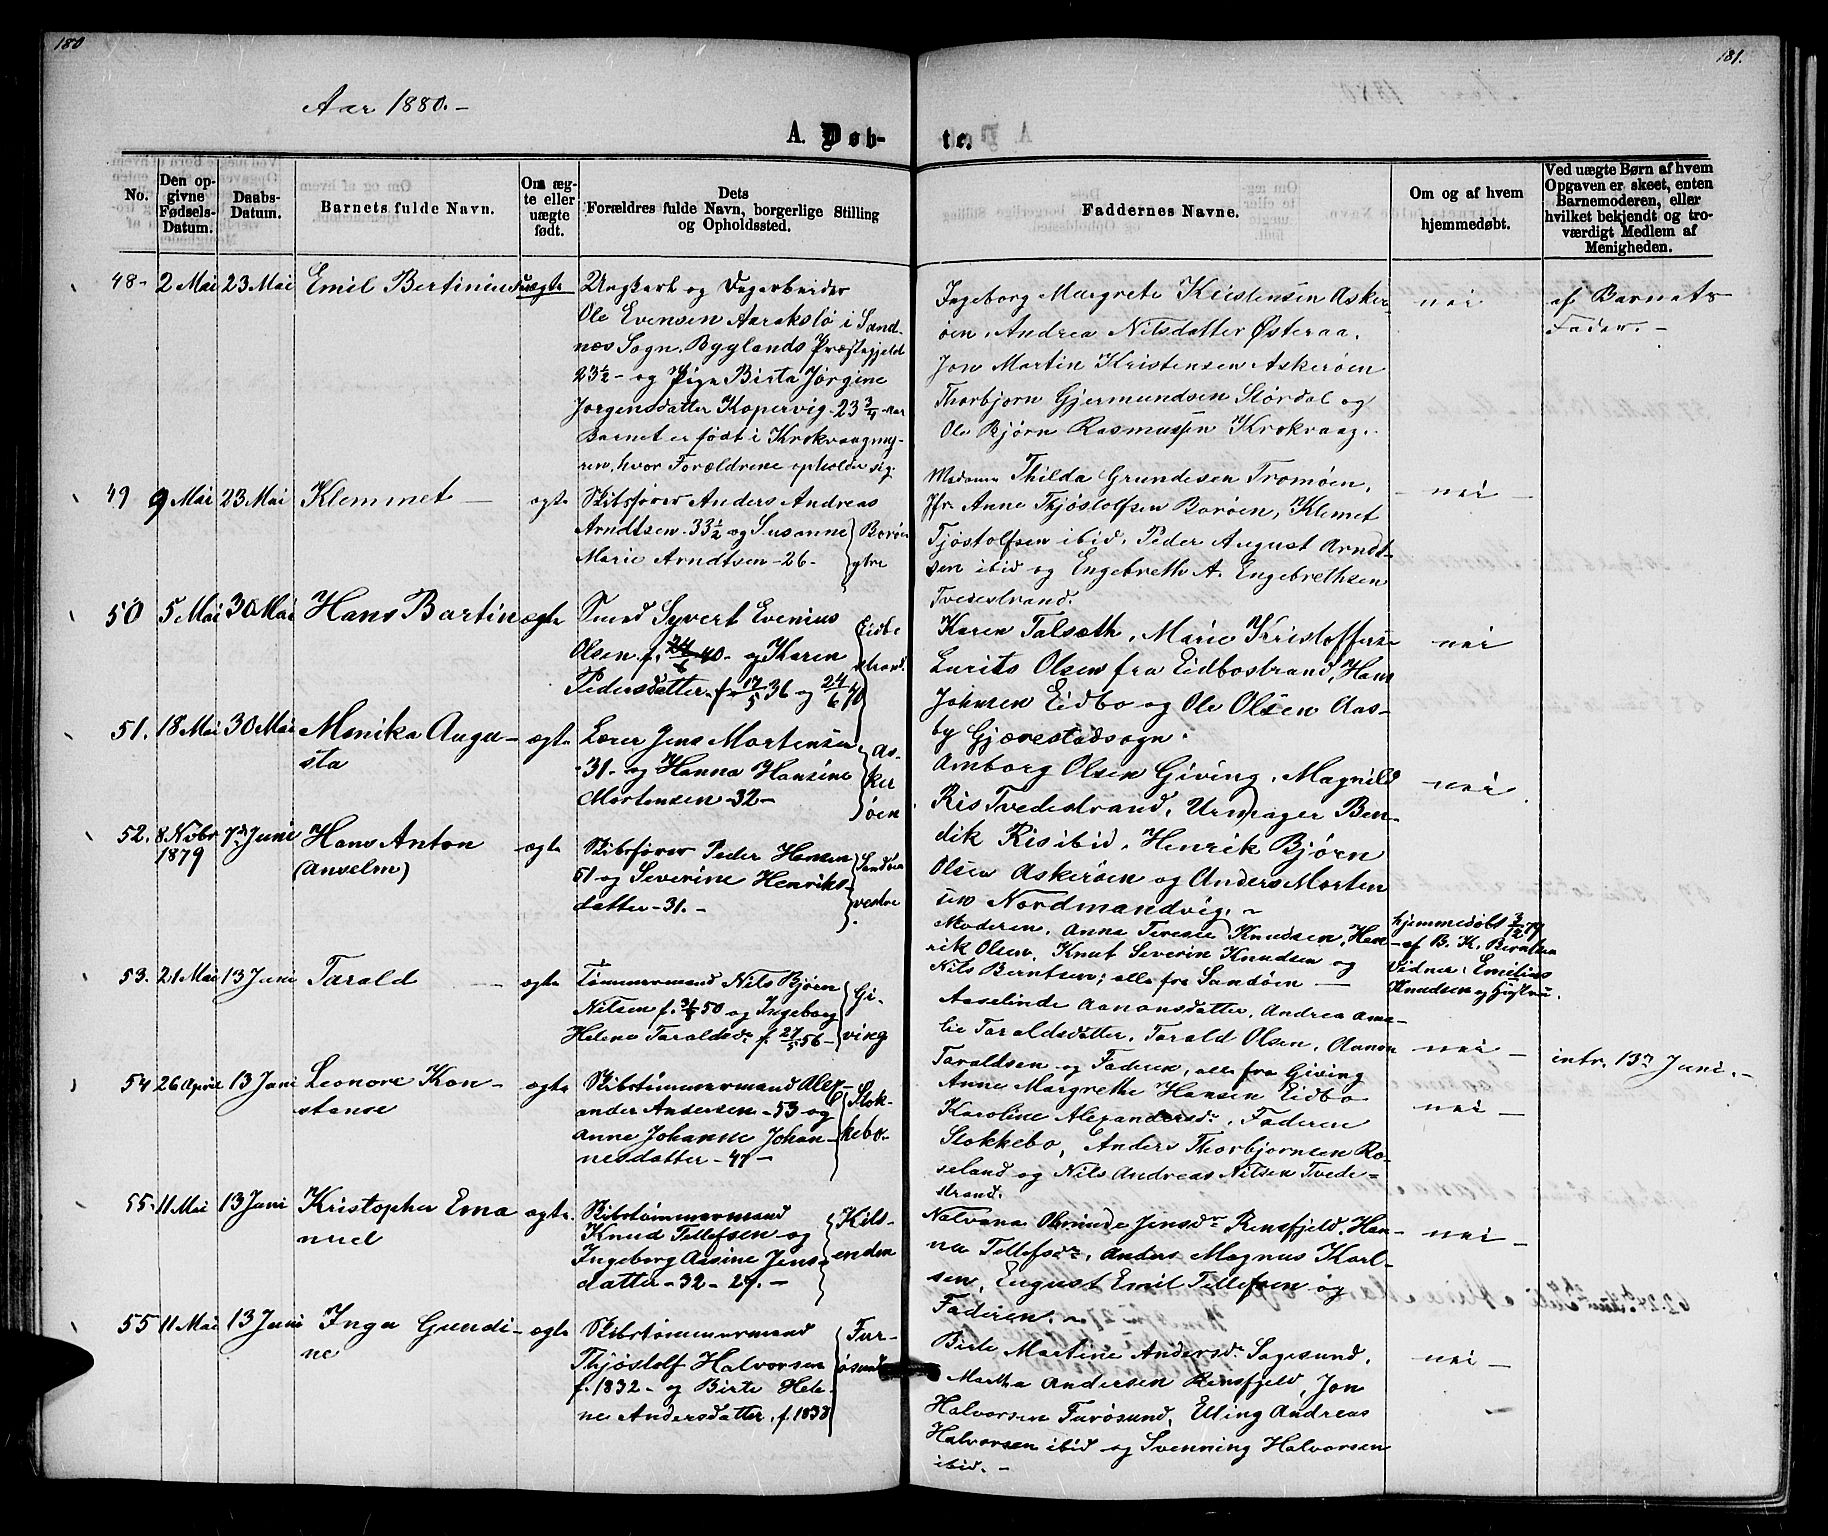 180
181.
Aar 1880.-
A. Døb-
te.
No.
Den op-
givne
Fødsels-
Datum.
Daabs-
Datum.
Barnets fulde Navn.
Om æg-
te eller
uægte
født.
Dets
Forældres fulde Navn, borgerlige Stilling
og Opholdssted.
Faddernes Navne.
Om og af hvem
hjemmedøbt.
Ved uægte Børn af hvem
Opgaven er skeet, enten
Barnemoderen, eller
hvilket bekjendt og tro-
værdigt Medlem af
Menigheden.
48- 2 Mai 23 Mai Emil Bertinius uægte
Ungkarl og Dagarbeider
Ole Evensen Aarakslø i Sand-
næs Sogn, Byglands Præstegjeld
23½- og Pige Birta Jørgine
Jørgensdatter Kopervig-23¾ Aar
Barnet er født i Krokvaagmy-
ren, hvor Forældrene opholder sig.
Ingeborg Margrete Kristensen Asker-
øen, Andrea Nilsdatter Østeraa,
Jon Martin Kristensen Askerøen
Thorbjørn Gjermundsen Stordal og
Ole Bjørn Rasmussen Krokvaag.
nei
af Barnets
Fader.-
49 9 Mai 23 Mai Klemmet - ægte
Skibsfører Anders Andreas
Arndtsen-33½ og Susanne
Marie Arndtsen-26-
Borøen
ytre
Madame Thilda Grundesen Tromøen,
Jfr. Anne Thjøstolfsen Borøen, Klemet
Tjøstolfsen ibid, Peder August Arndt-
sen ibid og Engebreth A. Engebrethsen
Tvedestrand.
- nei -
50 5 Mai 30 Mai Hans Bartin ægte
Smed Syvert Evenius
Olsen f. 24/6 40- og Karen
Pedersdatter f. 17/5 36 og 24/6 40
Eidbo
strand
Karen Talsæth, Marie Kristoffersen
Laurits Olsen fra Eidbostrand, Hans
Johnsen Eidbo og Ole Olsen Aas-
by Gjerestadsogn.
nei
51. 18 Mai 30 Mai Monika Augu-
sta
ægte
Lærer Jens Mortensen
-31- og Hanna Hansine
Mortensen-32-
As-
ker
øen
Amborg Olsen Giving, Magnild
Ris Tvedestrand, Urmager Ben-
dik Ris ibid, Henrik Bjørn
Olsen Askerøen og Anders Morten
sen Nordmandvig.~
- nei
52. 8 Nvbr 7de Juni Hans Anton
1879 (Anselm)
ægte
Skibsfører Peder Hansen
51- og Severine Henriks-
datter-31.-
Sandøen
vestre
Moderen, Anna Teresie Knudsen, Hen
rik Olsen, Knut Severin Knudsen og
Nils Berntsen; alle fra Sandøen -
hjemmedøbt 3/12 79
-af B. K. Berntsen
Vidner: Emilius
Knudsen og Hustru.
53. 21 Mai 13 Juni Tarald - ægte
Tømmermand Nils Bjørn
Nilsen f. 50 og Ingeborg
Helene Taraldsdr f. 27/5 56-
Gi-
ving
Aaselinde Aanonsdatter, Andrea Ama-
lie Taraldsdatter, Tarald Olsen, Aanon
Taraldsen og Faderen, alle fra Giving
nei -
intr. 13de Juni.-
54 26 April 13 Juni Leonore Kon-
stanse
ægte
Skibstømmermand Alex-
ander Andersen-53 og
Anne Johanne Johan-
nesdatter-47-
Stok-
kebo-
Anne Margrethe Hansen Eidbo
Karoline Alexandersdr, Faderen
Stokkebo, Anders Thorbjørnsen Ro-
seland og Nils Andreas Nilsen Tvede-
strand.
nei -
55- 11 Mai 13 Juni Kristopher Ema
nuel
ægte.
Skibstømmermand
Knud Tellefsen og
Ingeborg Aasine Jens-
datter-32-27.-
Kils-
enden
Natvana Olminde Jensdr Rensfjeld, Han-
na Tellefsdr, Anders Magnus Karl-
sen, August Emil Tellefsen og
Faderen.~
nei -
55 11 Mai 13 Juni Inga Gundi-
ne
ægte
Skibstømmermand
Thjøstolf Halvorsen
f. 1832- og Birte Hele-
ne Andersdatter, f. 1838
Fur-
øsund
Birte Martine Andersdr Sagesund,
Martha Andersen Rensfjeld, Jon
Halvorsen Furøsund, Elling Andreas
Halvorsen ibid og Svenning Halvorsen
ibid.-
nei -